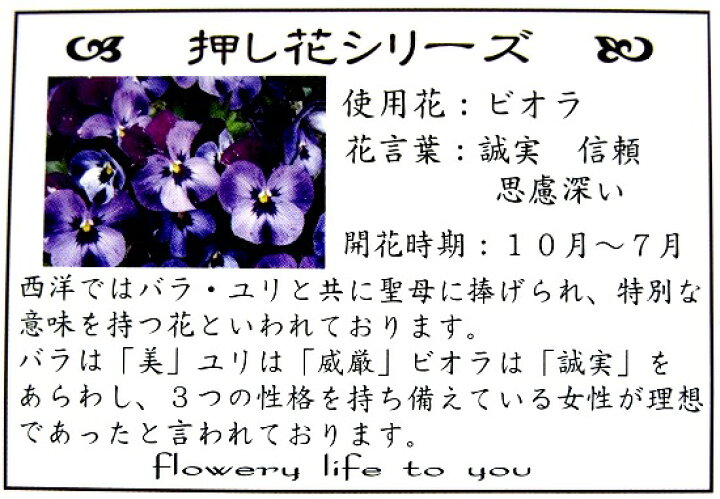 押し花シリーズ
使用花：ビオラ
花言葉：誠実　信頼
思慮深い
開花時期：１０月～７月
西洋ではバラ・ユリと共に聖母に捧げられ、特別な
意味を持つ花といわれております。
バラは「美」ユリは「威厳」ビオラは「誠実」を
あらわし、３つの性格を持ち備えている女性が理想
であったと言われております。
flowery life to you